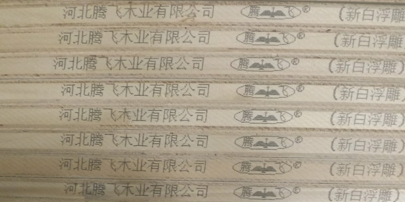 河北腾飞木业有限公司 腾飞® (新白浮雕)
河北腾飞木业有限公司 腾飞® (新白浮雕)
河北腾飞木业有限公司 腾飞® (新白浮雕)
河北腾飞木业有限公司 腾飞® (新白浮雕)
河北腾飞木业有限公司 腾飞® (新白浮雕)
河北腾飞木业有限公司 腾飞® (新白浮雕)
河北腾飞木业有限公司 腾飞® (新白浮雕)
河北腾飞木业有限公司 腾飞® (新白浮雕)